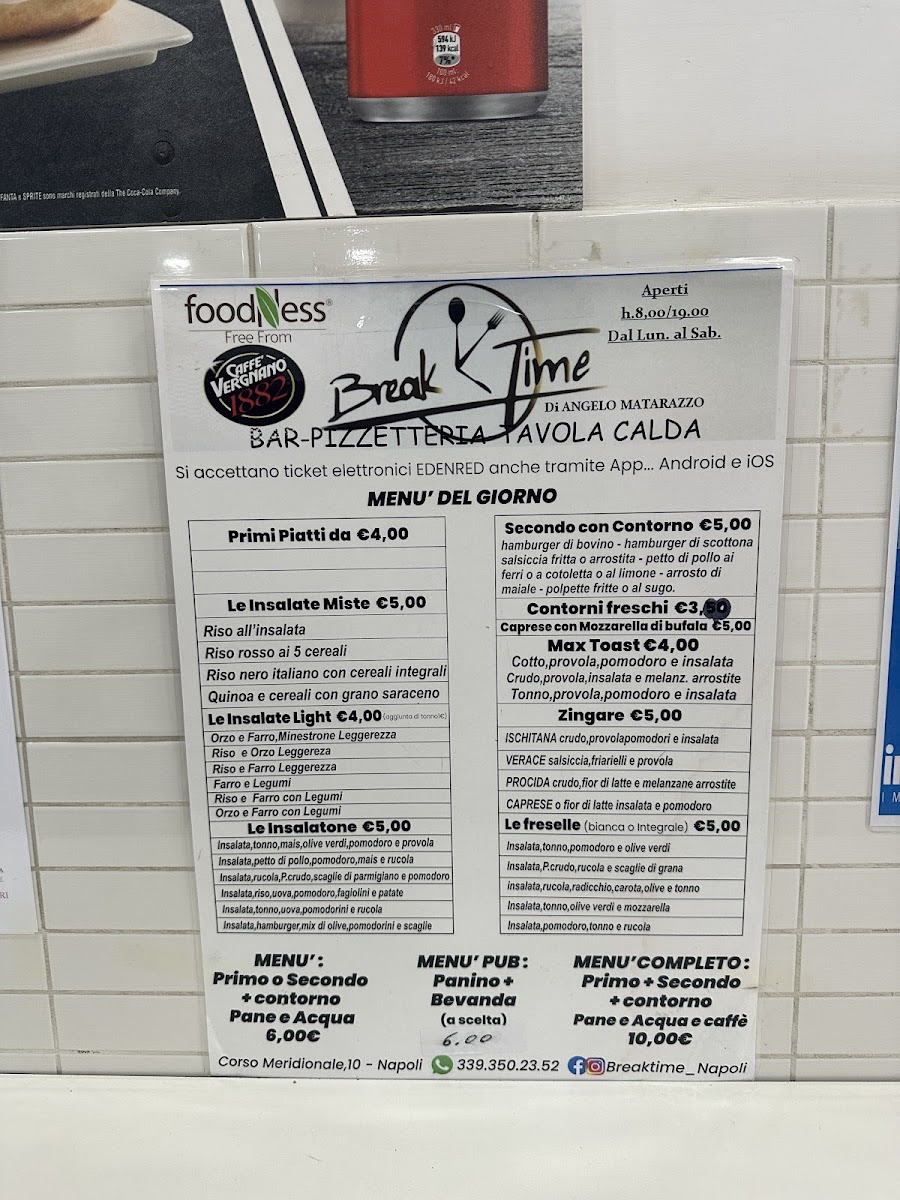 330 ml
594 kJ
139 kcal
7%*
100 ml:
180 kJ / 42 kcal
FANTA e SPRITE sono marchi registrati della The Coca-Cola Company.
foodNess®
Free From
CAFFÈ
VERGNANO
1882
Break Time
Di ANGELO MATARAZZO
Aperti
h.8,00/19.00
Dal Lun. al Sab.
BAR-PIZZETTERIA TAVOLA CALDA
Si accettano ticket elettronici EDENRED anche tramite App... Android e iOS
MENU' DEL GIORNO
Primi Piatti da €4,00
Le Insalate Miste €5,00
Riso all'insalata
Riso rosso ai 5 cereali
Riso nero italiano con cereali integrali
Quinoa e cereali con grano saraceno
Le Insalate Light €4,00 (aggiunta di tonno1€)
Orzo e Farro,Minestrone Leggerezza
Riso e Orzo Leggereza
Riso e Farro Leggerezza
Farro e Legumi
Riso e Farro con Legumi
Orzo e Farro con Legumi
Le Insalatone €5,00
Insalata,tonno,mais,olive verdi,pomodoro e provola
Insalata,petto di pollo,pomodoro,mais e rucola
Insalata,rucola,P.crudo,scaglie di parmigiano e pomodoro
Insalata,riso,uova,pomodoro,fagiolini e patate
Insalata,tonno,uova,pomodorini e rucola
Insalata,hamburger,mix di olive,pomodorini e scaglie
Secondo con Contorno €5,00
hamburger di bovino - hamburger di scottona
salsiccia fritta o arrostita - petto di pollo ai
ferri o a cotoletta o al limone - arrosto di
maiale - polpette fritte o al sugo.
Contorni freschi €3,50
Caprese con Mozzarella di bufala €5,00
Max Toast €4,00
Cotto,provola,pomodoro e insalata
Crudo,provola,insalata e melanz. arrostite
Tonno,provola,pomodoro e insalata
Zingare €5,00
ISCHITANA crudo,provolapomodori e insalata
VERACE salsiccia,friarielli e provola
PROCIDA crudo,fior di latte e melanzane arrostite
CAPRESE o fior di latte insalata e pomodoro
Le freselle (bianca o Integrale) €5,00
Insalata,tonno,pomodoro e olive verdi
Insalata,P.crudo,rucola e scaglie di grana
Insalata,rucola,radicchio,carota,olive e tonno
Insalata,tonno,olive verdi e mozzarella
Insalata,pomodoro,tonno e rucola
MENU' :
Primo o Secondo
+ contorno
Pane e Acqua
6,00€
MENU' PUB :
Panino +
Bevanda
(a scelta)
6.00
MENU'COMPLETO :
Primo + Secondo
+ contorno
Pane e Acqua e caffè
10,00€
Corso Meridionale,10 - Napoli 339.350.23.52 Breaktime_Napoli